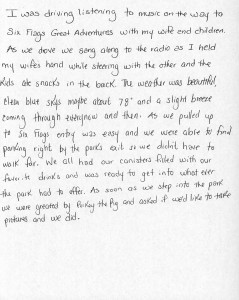 I was driving listening to music on the way to
Six Flags Great Adventures with my wife and children.
As we dove we sang along to the radio as I held
my wife's hand while steering with the other and the
kids ate snacks in the back. The weather was beautiful,
clean blue skys maybe about 78° and a slight breeze
coming through everynow and then. As we pulled up
to Six Flags entry was easy and we were able to find
parking right by the park's exit so we didn't have to
walk far. We all had our canisters filled with our
favorite drinks and was ready to get into what ever
the park had to offer. As soon as we step into the park
we were greated by Porky the Pig and asked if we'd like to take
pictures and we did.